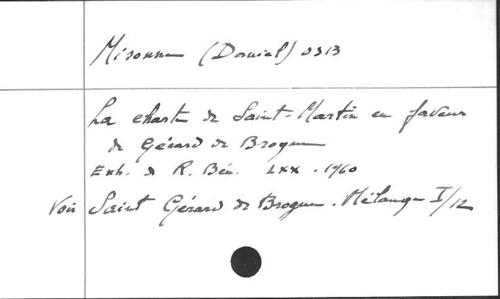 Misonne (Daniel) OSB
La charte de Saint-Martin en faveur
de Gérard de Brogne
Exh. de R. Bén. LXX. 1960
Voir Saint Gérard de Brogne. Mélange I/12